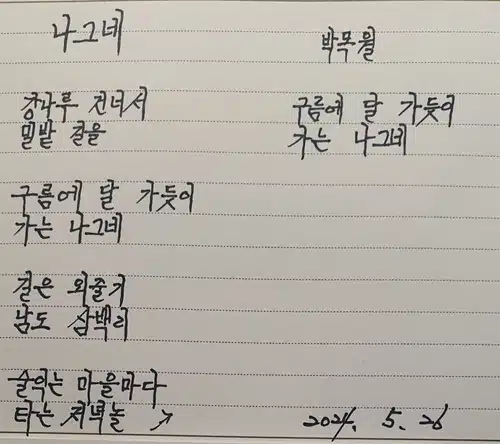 나그네
박목월
강나루 건너서
밀밭 길을
구름에 달 가듯이
가는 나그네
길은 외줄기
남도 삼백리
술익는 마을마다
타는 저녁놀 ↗
구름에 달 가듯이
가는 나그네
2024. 5. 26